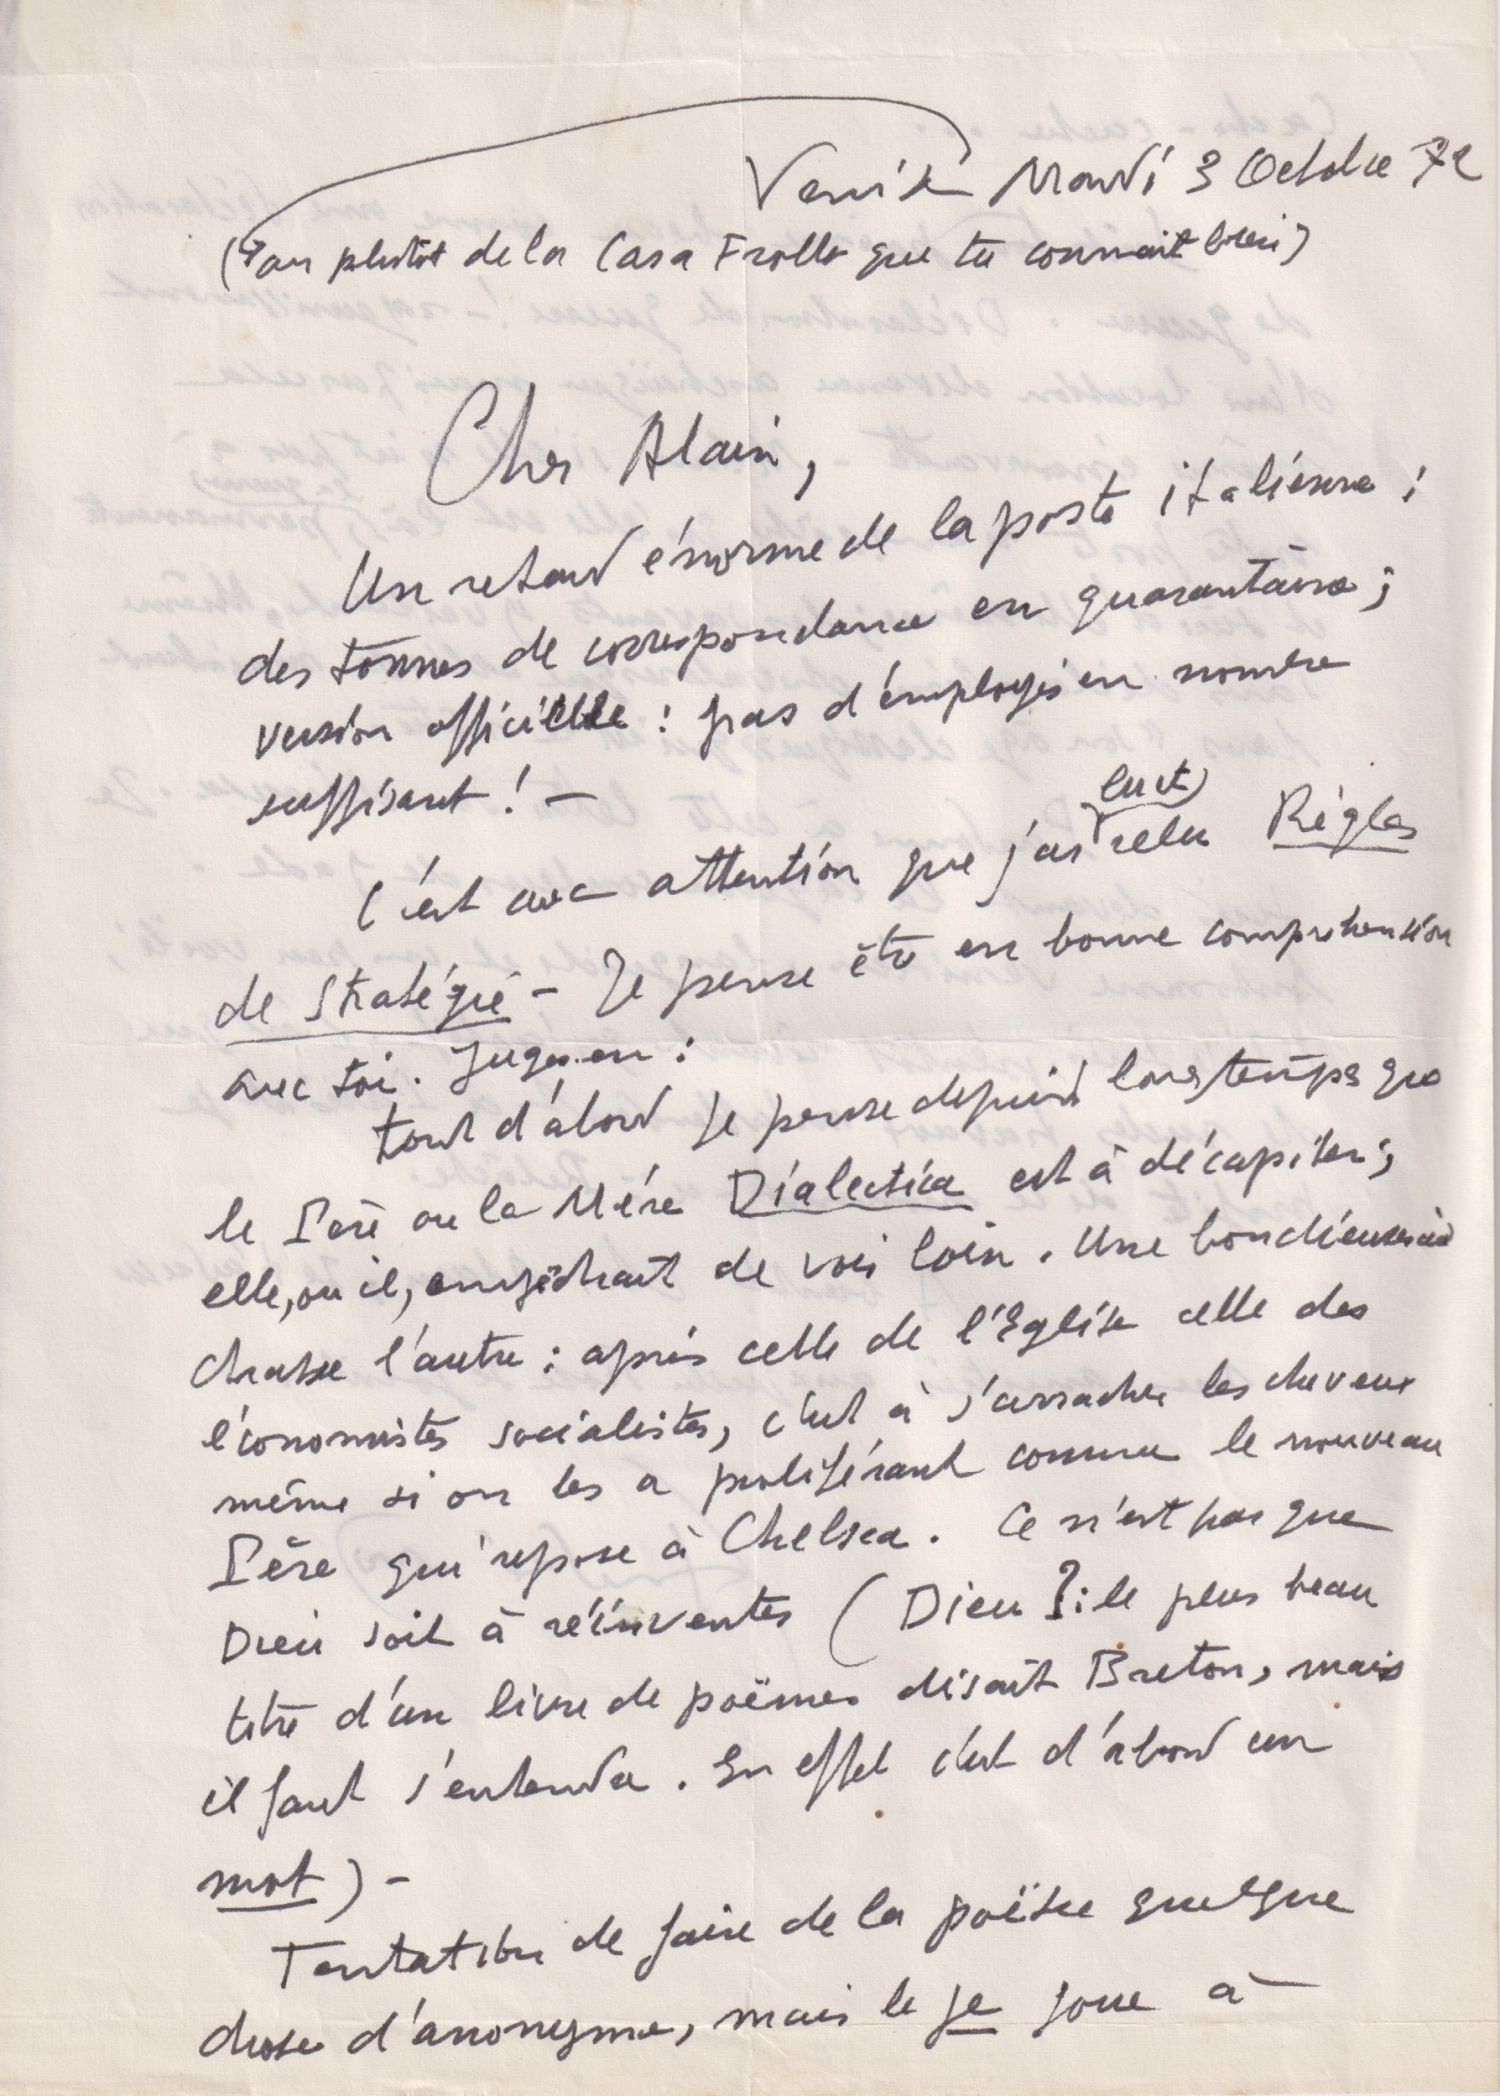 Venise Mardi 3 Octobre 72
(ou plutôt de la Casa Frollo que tu connait bien)
Cher Alain,
Un retard énorme de la poste italienne ;
des tonnes de correspondance en quarantaine ;
version officielle : pas d'employés en nombre
suffisant ! –
C'est avec attention que j'ai lu et relu Règles
de Stratégie – Je pense être en bonne compréhension
avec toi. Juges-en :
tout d'abord je pense depuis longtemps que
le Père ou la Mère Dialectica est à décapiter ;
elle, ou il, empêchait de voir loin. Une bondieuserie
chasse l'autre : après celle de l'Eglise celle des
économistes socialistes, c'est à s'arracher les cheveux
même si on les a proliférant comme le nouveau
Père qui repose à Chelsea. Ce n'est pas que
Dieu soit à réinventer (Dieu ? : le plus beau
titre d'un livre de poëmes disait Breton, mais
il faut s'entendre. En effet c'est d'abord un
mot) –
Tentation de faire de la poësie quelque
chose d'anonyme, mais le je joue à